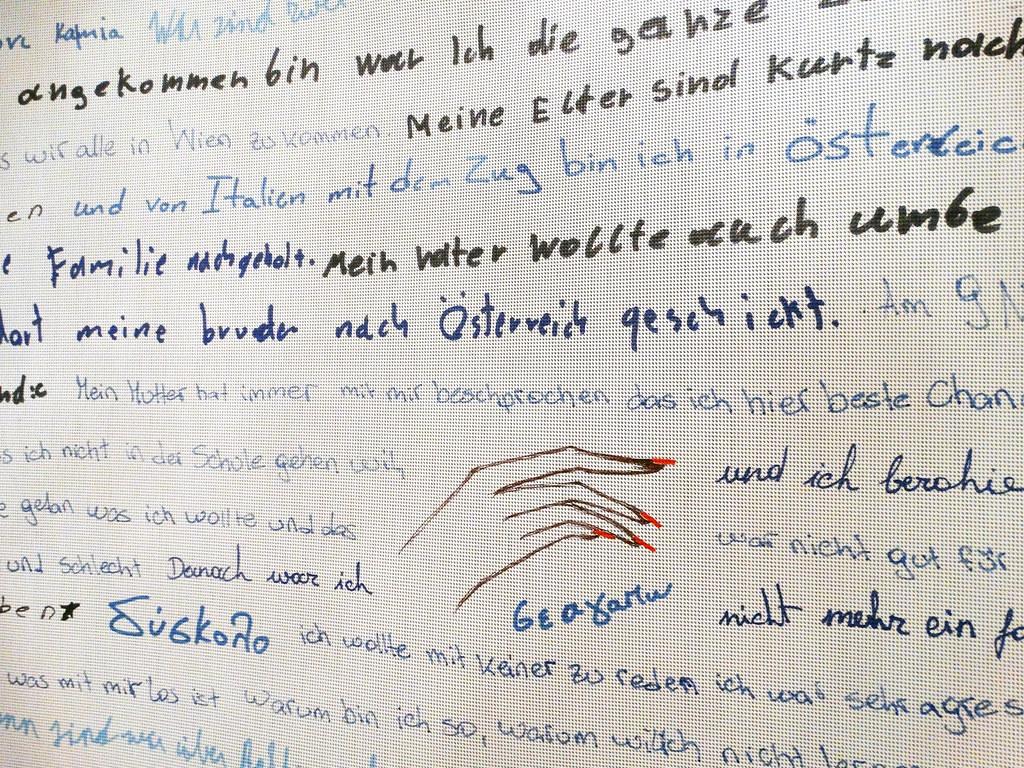 Wir sind
angekommen bin war Ich die ganze
wir alle in Wien zu kommen Meine Elter sind kurtz nach
en und von Italien mit dem Zug bin ich in Österreic
e Familie nachgeholt. Mein vater wollte auch umbe
meine bruder nach Österreich geschickt. Am 9
Mein Mutter hat immer mit mir beschprochen das ich hier beste Chan
s ich nicht in der Schule gehen will, und ich
e getan was ich wollte und das war nicht gut für
und schlecht Danach war ich nicht mehr ein
ben δύσκολο ich wollte mit keiner zu reden ich war sehr agres
was mit mir los ist warum bin ich so, warum will ich nicht
sind wir über